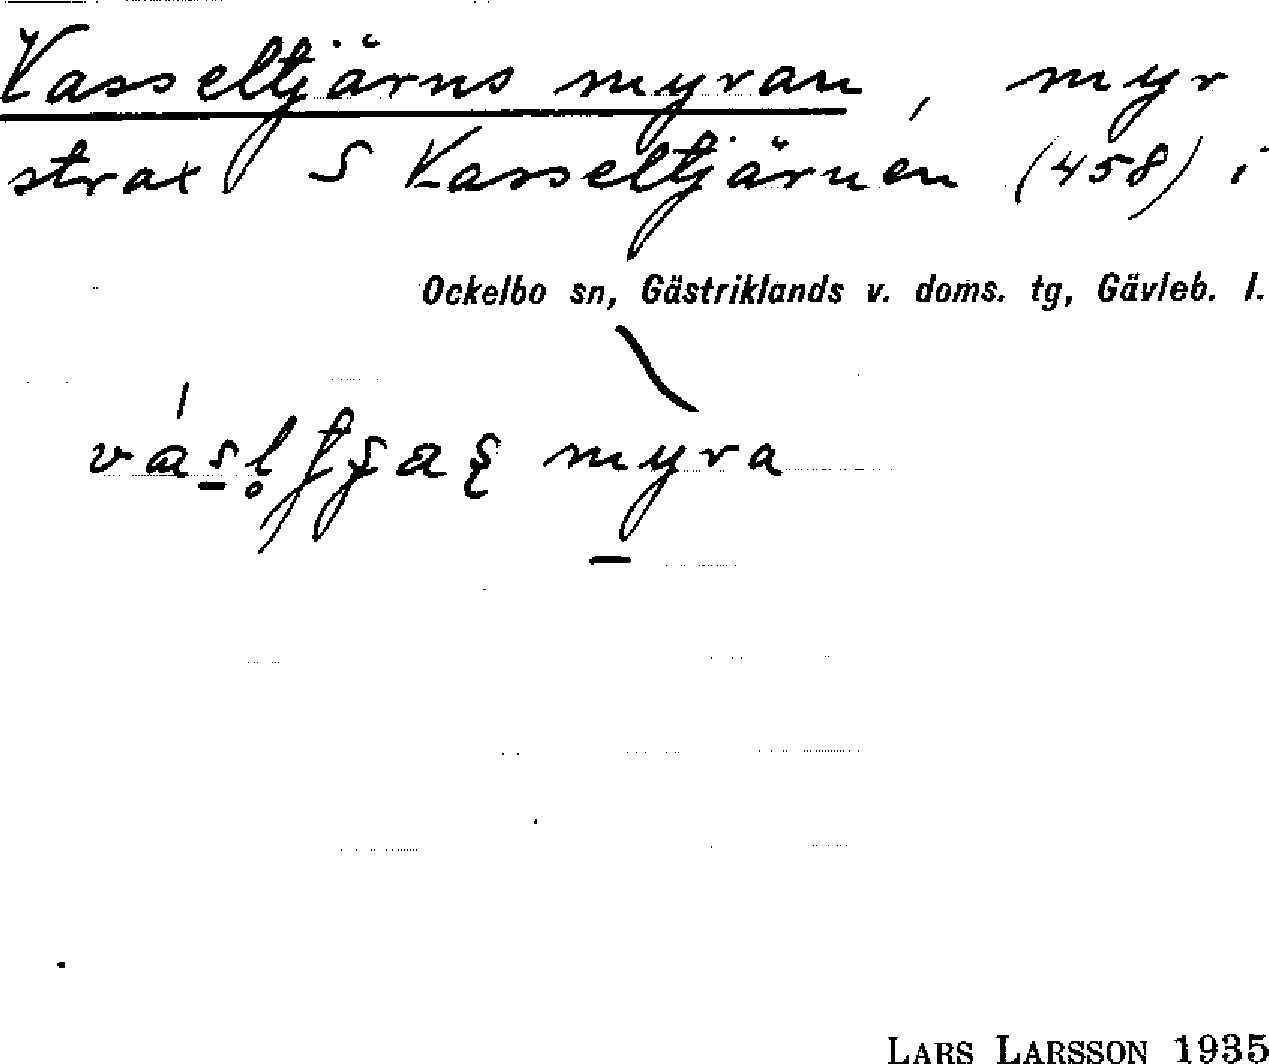 Vasseltjärns myran, myr
strax S Vasseltjärnen (458) i
Ockelbo sn, Gästriklands v. doms. tg, Gävleb. l.
myra
LARS LARSSON 1935